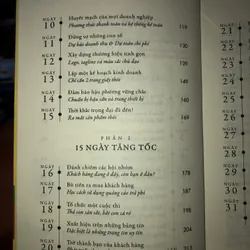 NGÀY 10
Huyết mạch của mọi doanh nghiệp
Phương thức thanh toán và hệ thống kế toán 119
NGÀY 11
Đứng sự những con số
Dự báo doanh thu & Dự toán chi phí
NGÀY 12
Xây dựng thương hiệu tinh gọn
Logo, tagline và màu sắc chủ đạo
NGÀY 13
Lập một kế hoạch kinh doanh
Chỉ cần 2 trang giấy
NGÀY 14
Đảm bảo hậu phương vững chắc
Chuẩn bị hậu cần và trang thiết bị
NGÀY 15
Thời khắc trọng đại đã đến!
Ra mắt sản phẩm
PHẦN 2
15 NGÀY TĂNG TỐC
NGÀY 16
Đánh chiếm các hội nhóm
Khách hàng đang ở đây, còn bạn ở đâu? 178
NGÀY 17
Bỏ tiền ra mua khách hàng
Học cách sử dụng quảng cáo trả phí 187
NGÀY 18
Tổ chức một cuộc thi
Thả con săn sắt, bắt con cá rô 198
NGÀY 19
Xuất hiện trên những bảng tin
Đặc biệt là những trang tin uy tín 205
NGÀY 20
Trở thành bạn của khách hàng
NGÀY 21
NGÀY 22
NGÀY 23
NGÀY 24
NGÀY 25
NGÀY 26
NGÀY 27
NGÀY 28
NGÀY 29
NGÀY 30
NGÀY 31